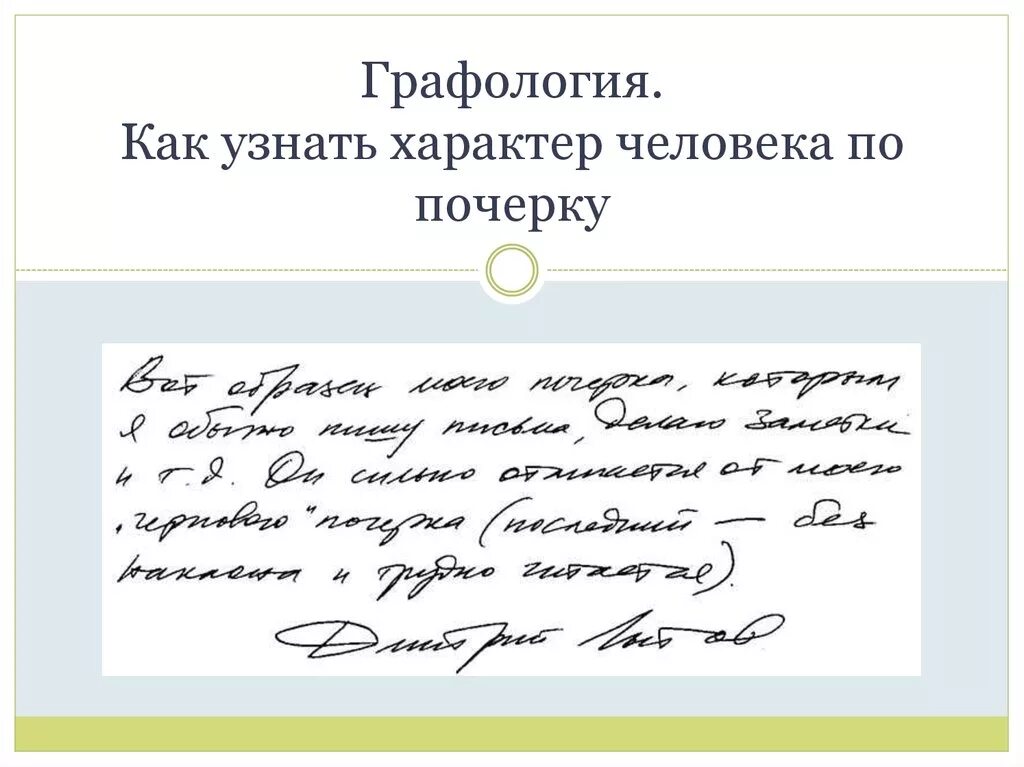 Графология.
Как узнать характер человека по
почерку
Вот образец моего почерка, которым
я обычно пишу письма, делаю заметки
и т.д. Он сильно отличается от моего
„чернового" почерка (последний — без
наклона и трудно читается).
Дмитрий Лытов